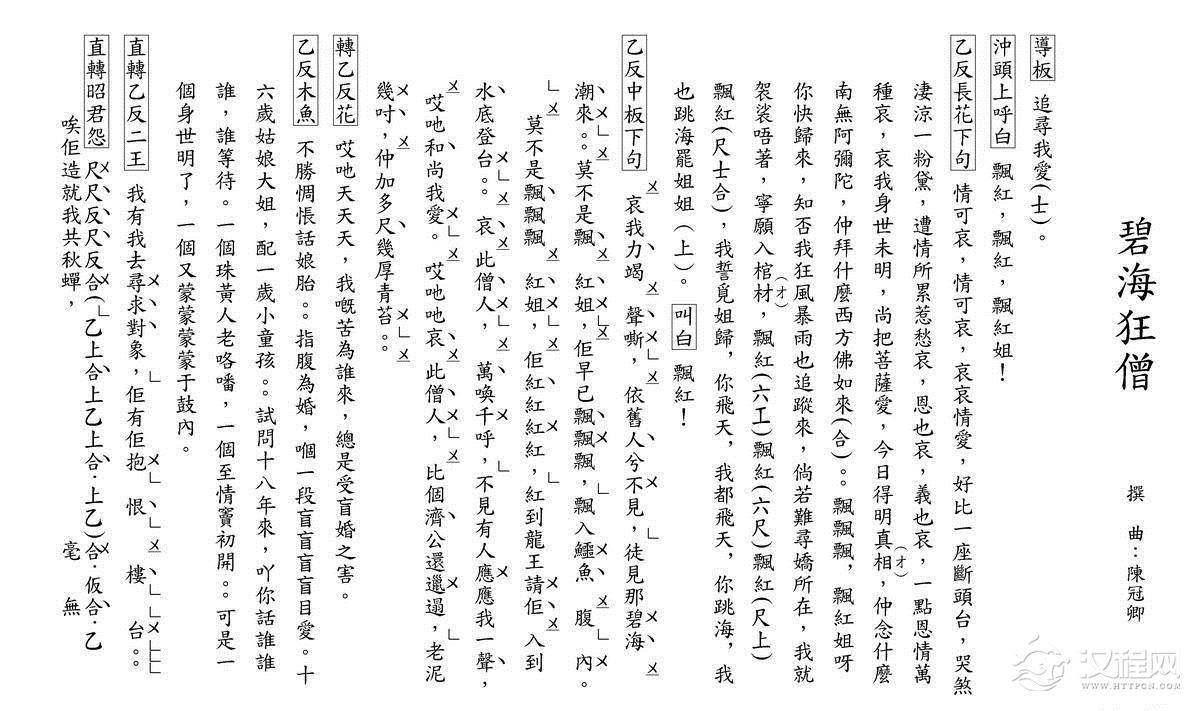 碧海狂僧
撰曲：陳冠卿
導板 追尋我愛(士)。
沖頭上呼白 飄紅，飄紅，飄紅姐！
乙反長花下句 情可哀，情可哀，哀哀情愛，好比一座斷頭台，哭煞
淒涼一粉黛，遭情所累惹愁哀，恩也哀，義也哀，一點恩情萬
種哀，哀我身世未明，尚把菩薩愛，今日得明真相(才)，仲念什麼
南無阿彌陀，仲拜什麼西方佛如來(合)。。飄飄飄，飄紅姐呀
你快歸來，知否我狂風暴雨也追蹤來，倘若難尋嬌所在，我就
袈裟唔著，寧願入棺材(才)，飄紅(六工)飄紅(六尺)飄紅(尺上)
飄紅(尺士合)，我誓覓姐歸，你飛天，我都飛天，你跳海，我
也跳海罷姐姐（上）。 叫白 飄紅！
乙反中板下句 哀我力竭聲嘶，依舊人兮不見，徒見那碧海
潮來。。莫不是飄紅姐，佢早已飄飄飄，飄入鱷魚腹內。
莫不是飄飄飄紅姐，佢紅紅紅，紅到龍王請佢入到
水底登台。。哀此僧人，萬喚千呼，不見有人應應我一聲，
哎吔和尚我愛。哎吔吔哀此僧人，比個濟公還邋遢，老泥
幾吋，仲加多尺幾厚青苔。。
轉乙反花 哎吔天天天，我嘅苦為誰來，總是受盲婚之害。
乙反木魚 不勝惆悵話娘胎。。指腹為婚，嗰一段盲盲盲盲目愛。十
六歲姑娘大姐，配一歲小童孩。。試問十八年來，吖你話誰誰
誰，誰等待。一個珠黃人老咯噃，一個至情竇初開。。可是一
個身世明了，一個又蒙蒙蒙蒙于鼓內。
直轉乙反二王 我有我去尋求對象，佢有佢抱恨樓台。。
直轉昭君怨 尺尺反尺反合(乙上合上乙上合·上乙)合·仮合·乙
唉佢造就我共秋蟬，毫無
汉程网
WWW.HTTPCN.COM